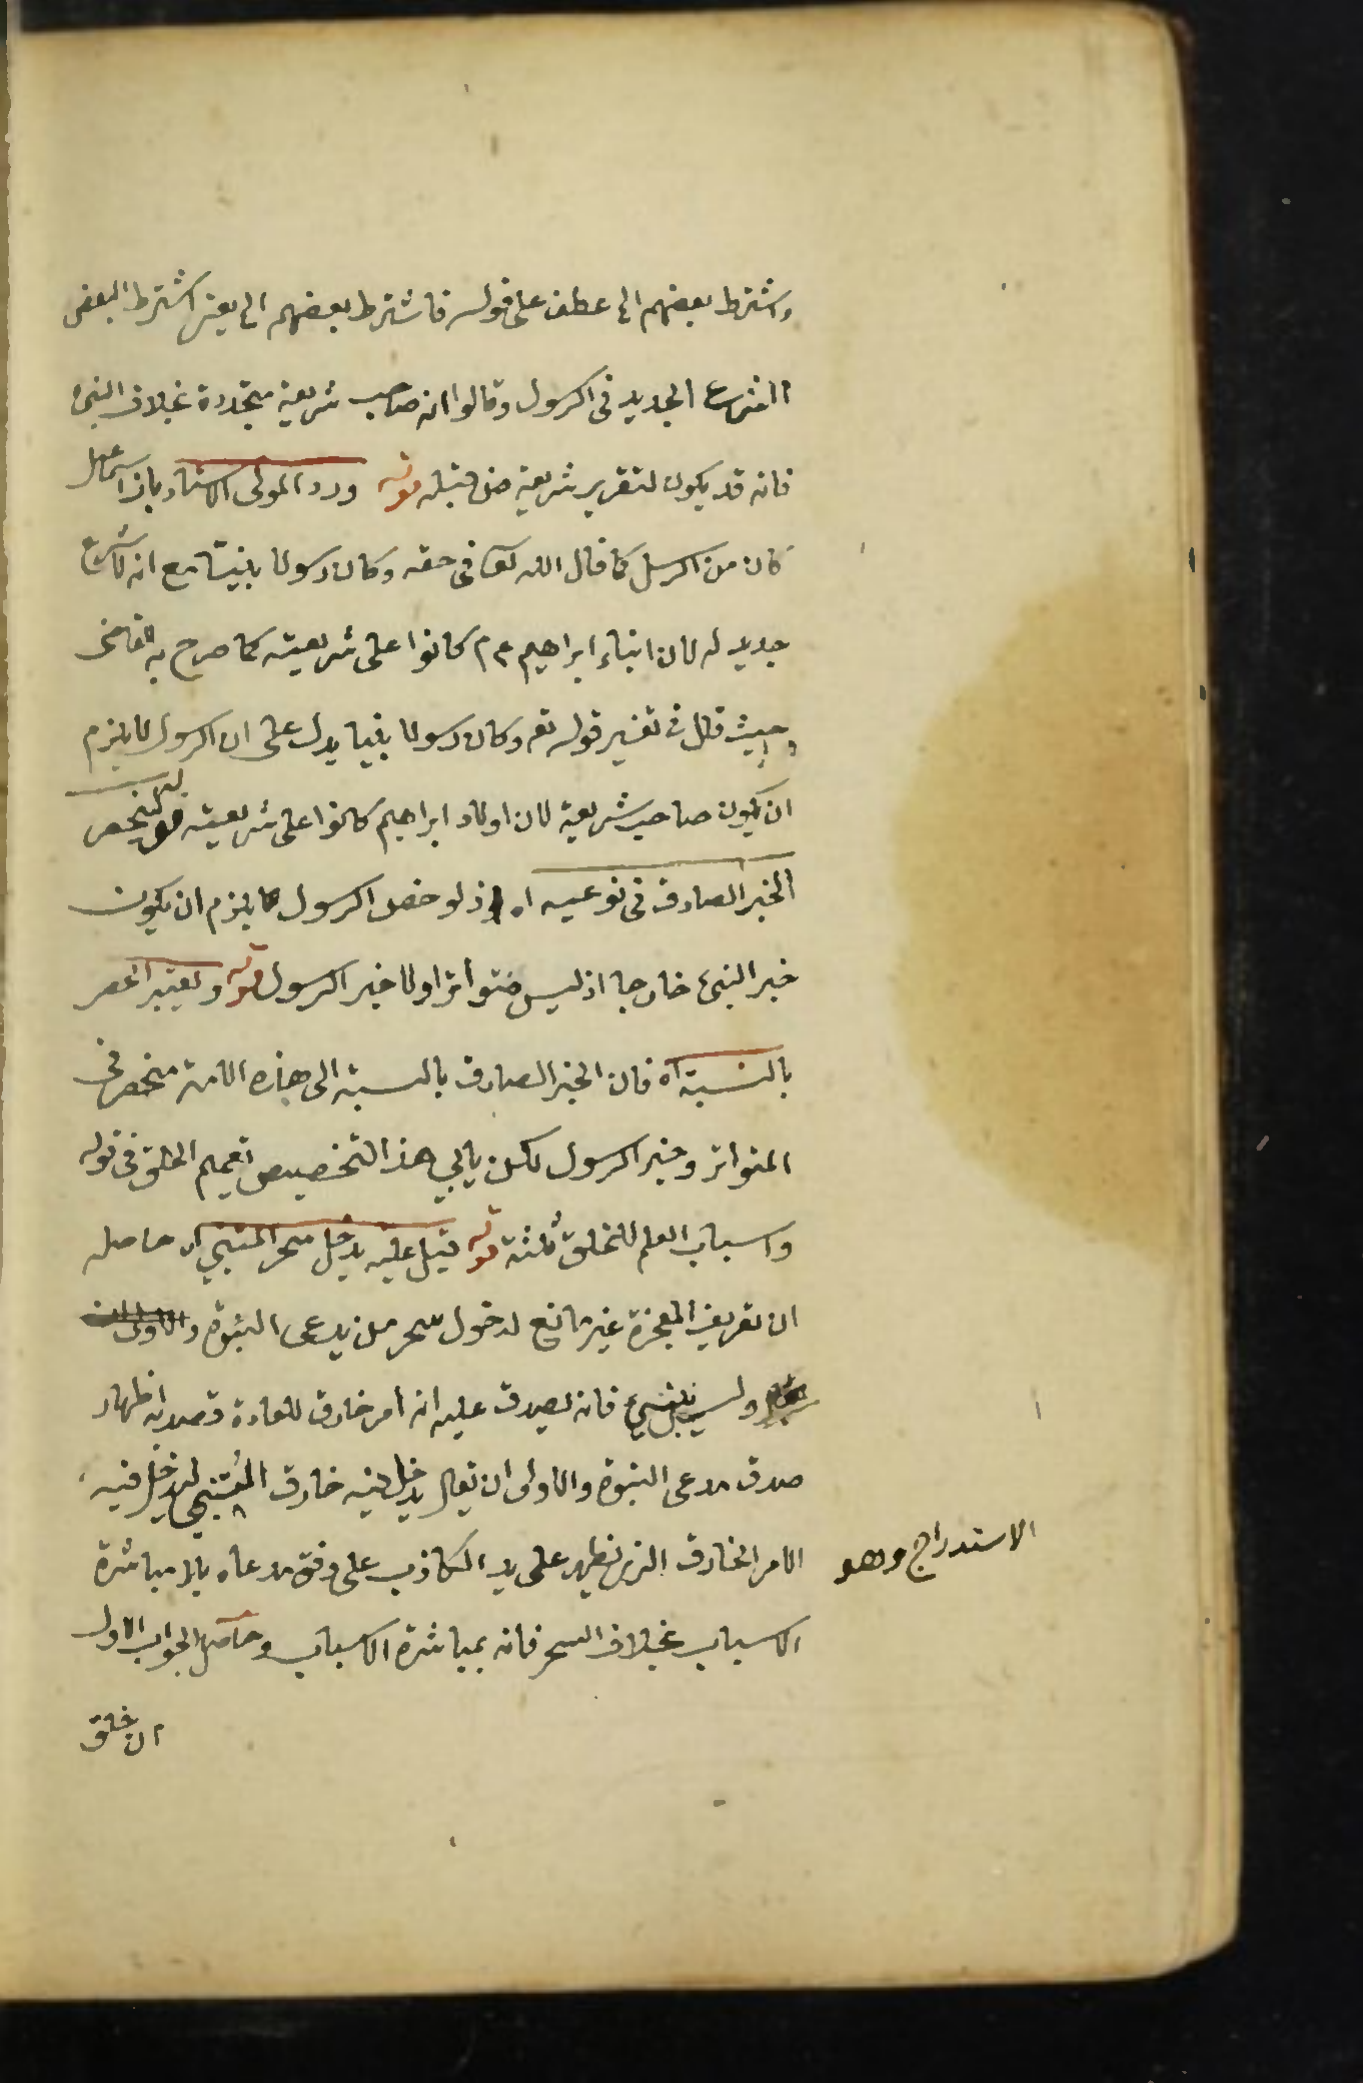 واشترط بعضهم الخ عطف على قوله فاشترط بعضهم الخ يعنى اشترط البعض
الشرع الجديد فى الرسول وقالوا انه صاحب شريعة متجددة بخلاف النبى
فانه قد يكون لتقرير شريعة من قبله قوله ورد المولى الاستاد بان اسمعيل
كان من الرسل كما قال الله تعالى فى حقه وكان رسولا نبيا مع انه لا شرع
جديد له لان ابناء ابراهيم عم كانوا على شريعته كما صرح به القاضى
حيث قال فى تفسير قوله تعم وكان رسولا نبيا يدل على ان الرسول لا يلزم
ان يكون صاحب شريعة لان اولاد ابراهيم كانوا على شريعته قوله لينحصر
الخبر الصادق فى نوعيه اه اذ لو خص الرسول يلزم ان يكون
خبر النبى خارجا اذ ليس متواترا ولا خبر الرسول قوله ويعتبر الحصر
بالنسبة اه فان الخبر الصادق بالنسبة الى هذه الامة منحصر فى
المتواتر وخبر الرسول لكن يابى هذا التخصيص تعميم الخلق فى قوله
واسباب العلم للخلق ثلثة قوله قيل عليه يدخل سحر المتنبى اه حاصله
ان تعريف المعجزة غير مانع لدخول سحر من يدعى النبوة
وليس بنبى فانه يصدق عليه انه امر خارق للعادة قصد به اظهار
صدق مدعى النبوة والاولى ان يقال يدخل فيه خارق المتنبى ليدخل فيه
الاستدراج وهو
الامر الخارق الذى يظهر على يد الكاذب على وفق مدعاه بلا مباشرة
الاسباب بخلاف السحر فانه بمباشرة الاسباب وحاصل الجواب الاول
ان خلق